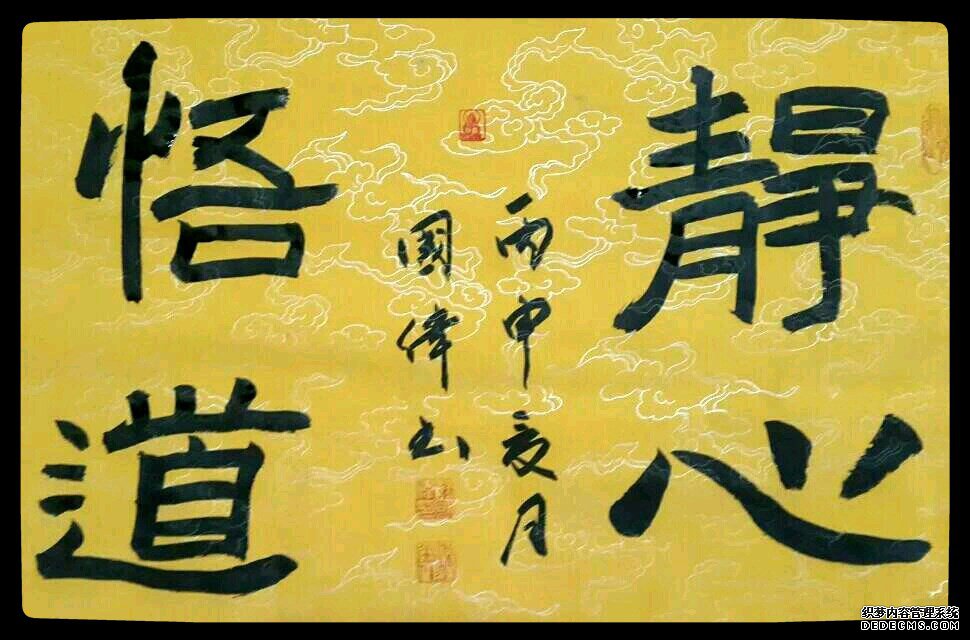 靜心
丙申夏月
國偉书
悟道
织梦内容管理系统
DEDECMS.COM